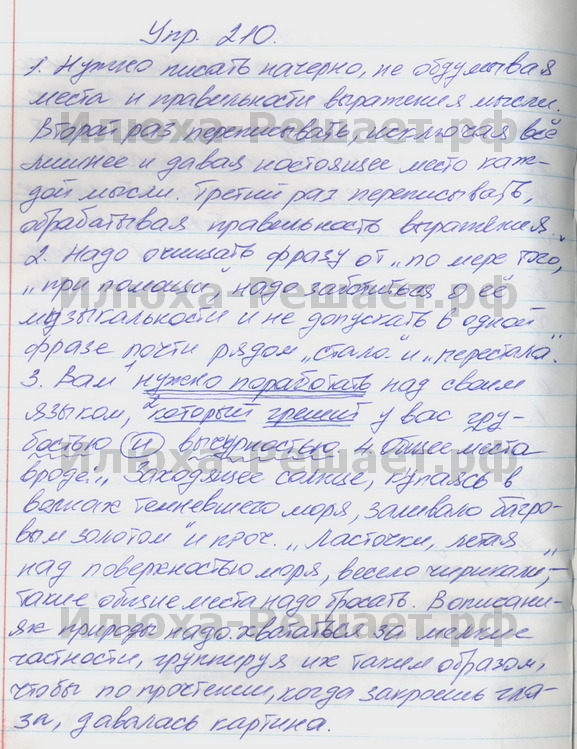 Упр. 210.
1. Нужно писать начерно, не обдумывая
места и правильности выражения мысли.
Второй раз переписывать, исключая всё
лишнее и давая настоящее место каж-
дой мысли. Третий раз переписывать,
обрабатывая правильность выражения.
2. Надо очищать фразу от „по мере того",
„при помощи", надо заботиться о её
музыкальности и не допускать в одной
фразе почти рядом „стала" и „перестала".
3. Вам 1 нужно поработать над своим
языком, 2 который грешит у вас гру-
бостью и вычурностью 4. Общее места
вроде: „Заходящее солнце, купаясь в
волнах темневшего моря, заливало багро-
вым золотом" и проч. „Ласточки, летая
над поверхностью моря, весело чирикали", -
такие общие места надо бросать. В описани-
ях природы надо хвататься за мелкие
частности, группируя их таким образом,
чтобы по прочтении, когда закроешь гла-
за, давалась картина.
Илюха-Решает.рф
Илюха-Решает.рф
Илюха-Решает.рф
Илюха-Решает.рф
Илюха-Решает.рф